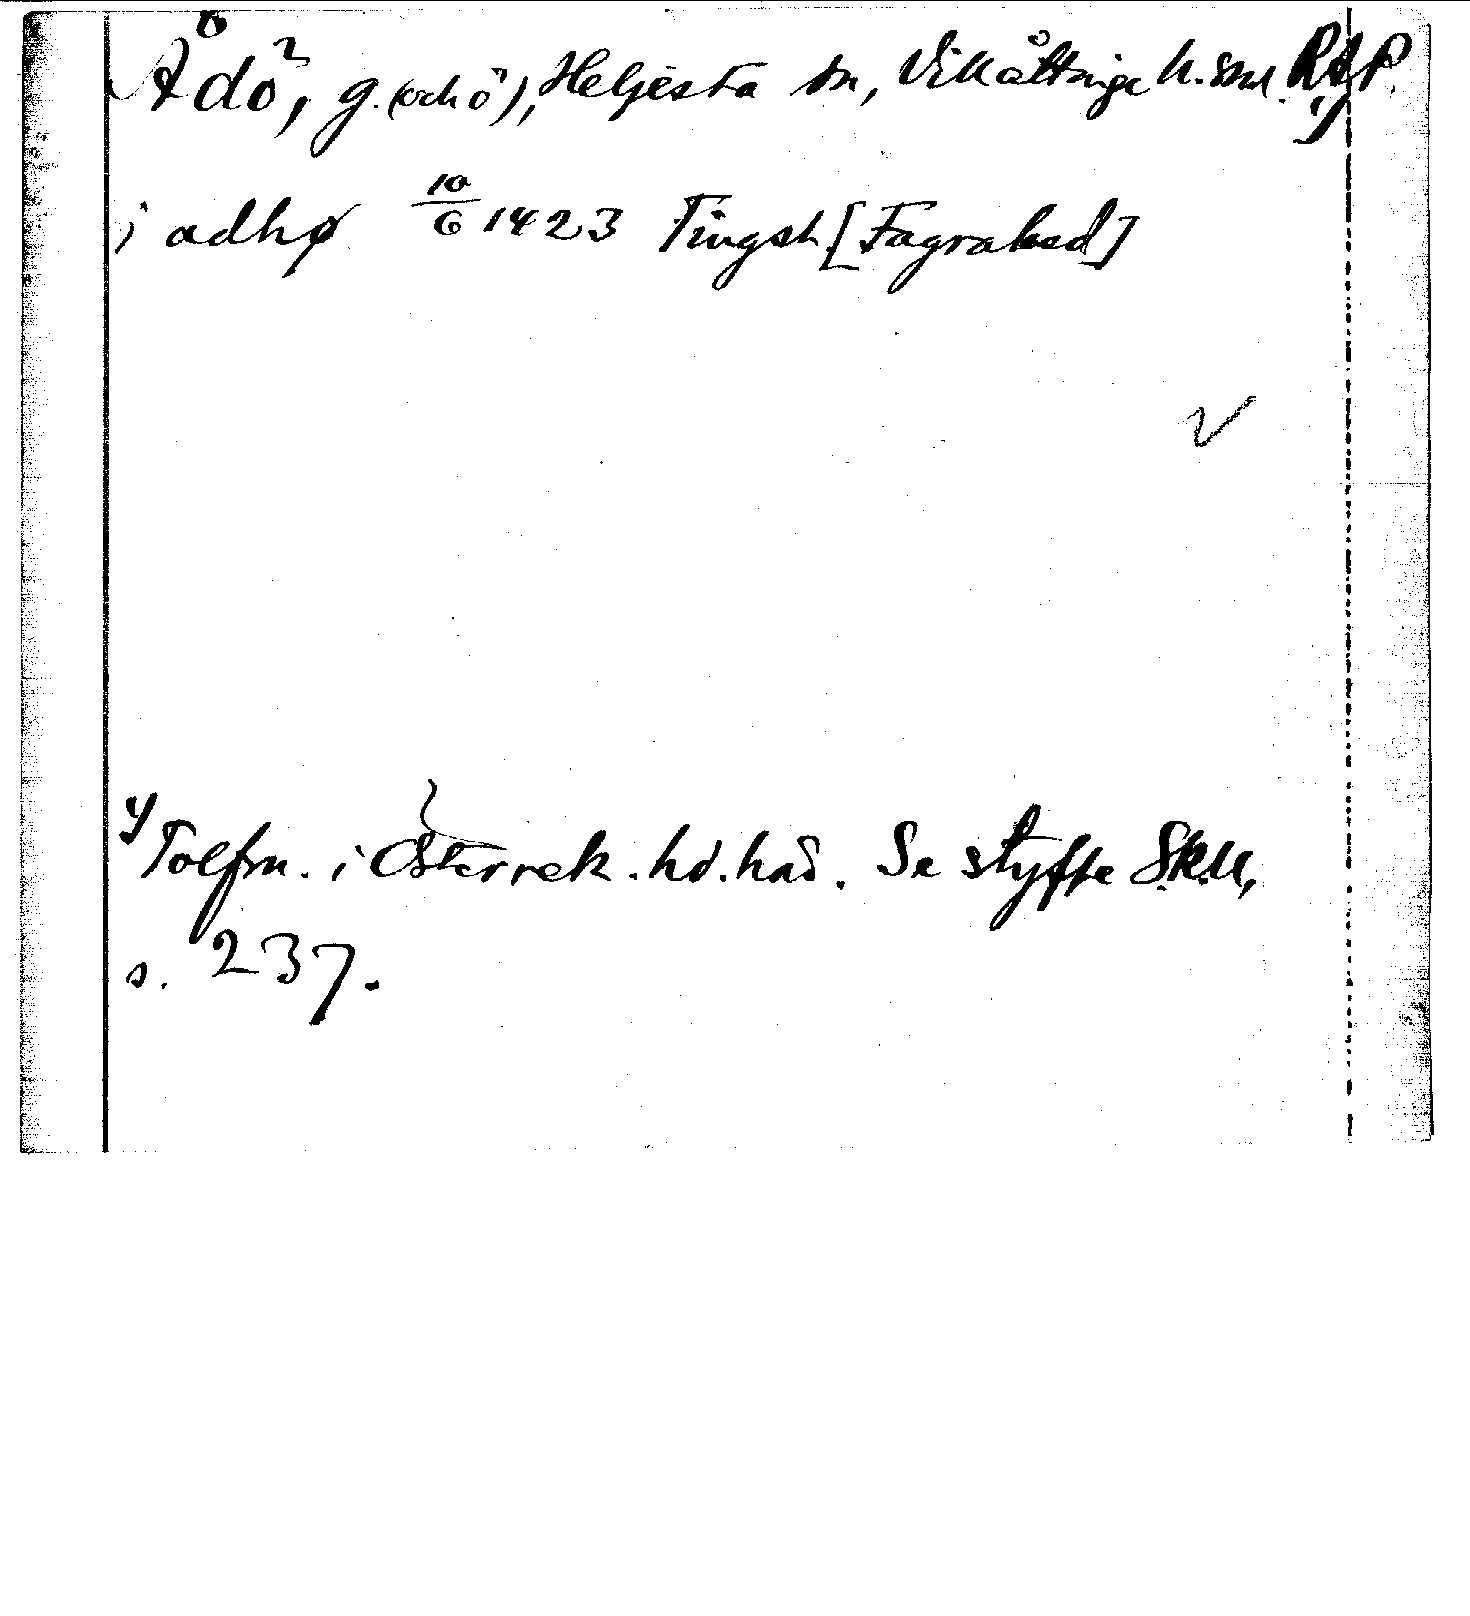 Ådö, g. (och ö), Heljesta sn, Villåttinge h. Sml. RAP
i adhø 10/6 1423 Tingst [Fagrahed]
1) Tolfm. i Österrek. hd. had. Se styffe Sk.U,
s. 237.